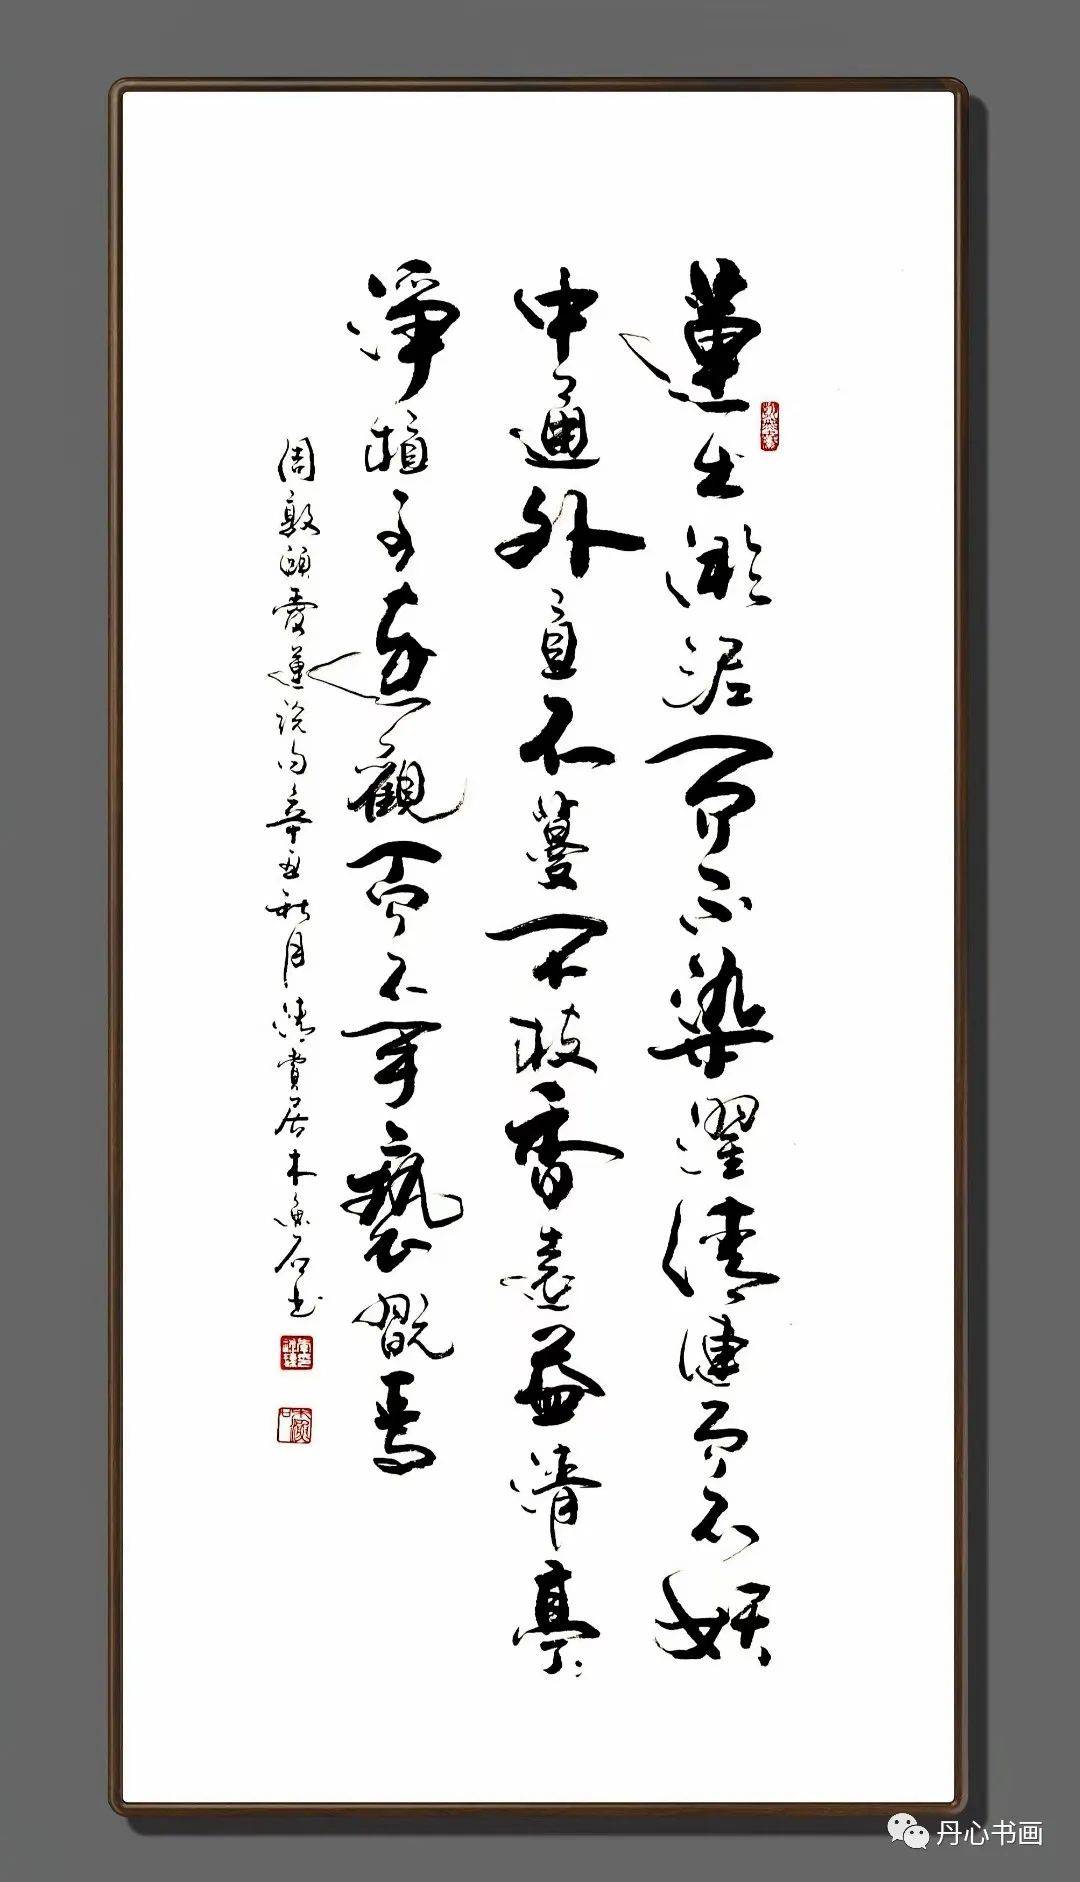 蓮出淤泥而不染濯清漣而不妖
中通外直不蔓不枝香遠益清亭〻
淨植可遠觀而不可褻翫焉
周敦頤愛蓮説句辛丑秋月清賞居木魚石书
丹心书画